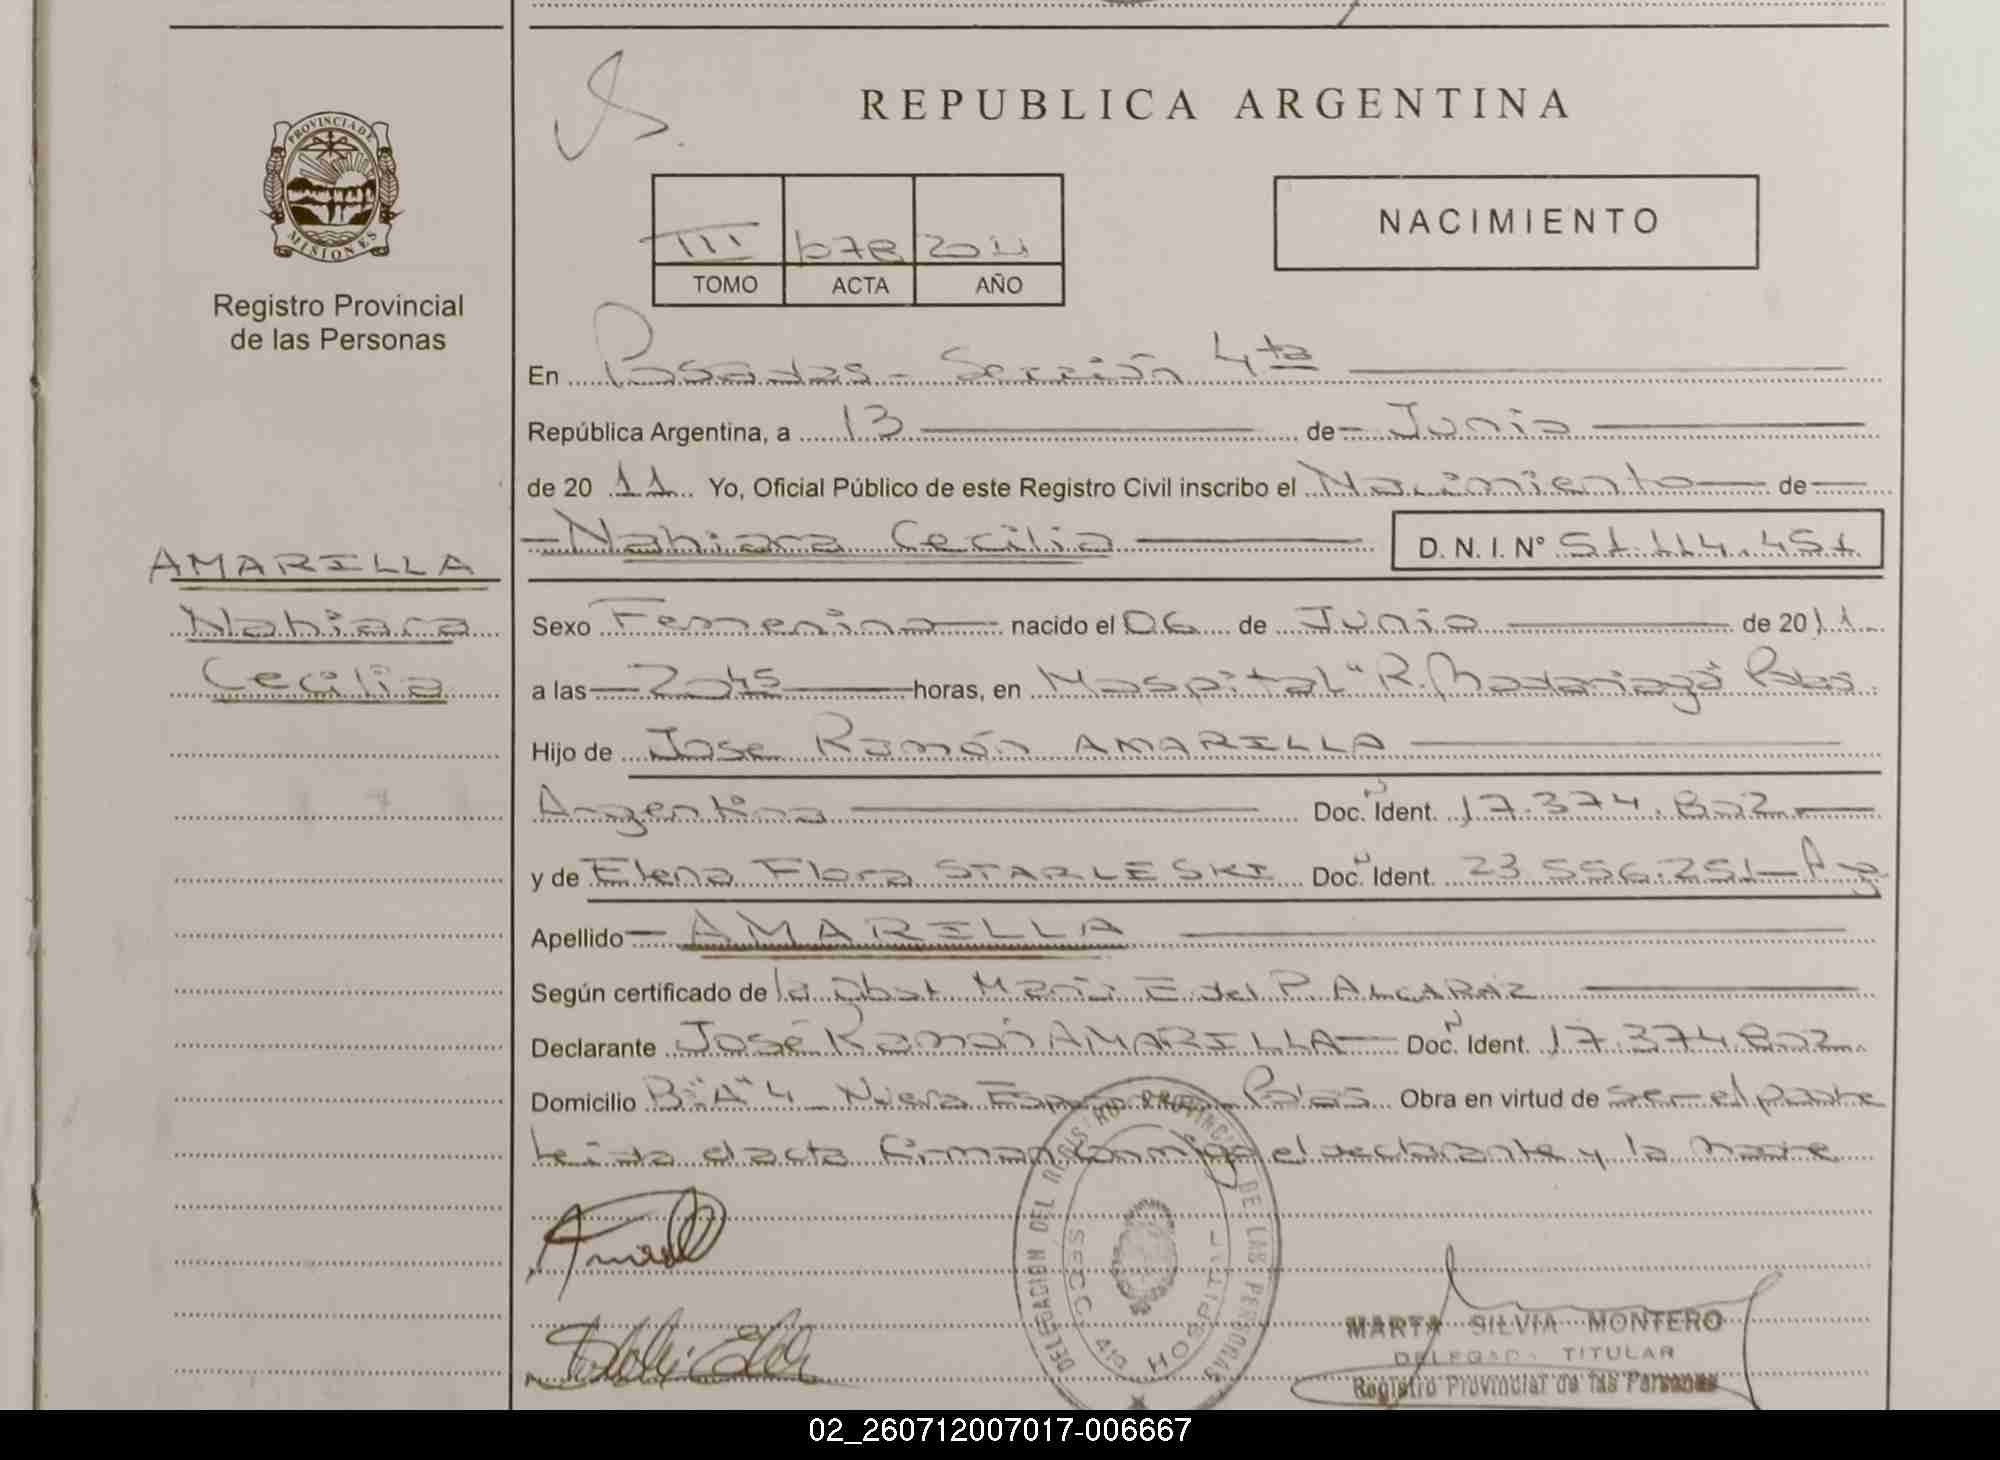 REPUBLICA ARGENTINA
PROVINCIA DE
MISIONES
Registro Provincial
de las Personas
NACIMIENTO
III 678 2011
TOMO ACTA AÑO
En Posadas - Sección 4ta
República Argentina, a 13 de Junio
de 20 11 Yo, Oficial Público de este Registro Civil inscribo el Nacimiento de
Nahiara Cecilia D. N. I. Nº 51.114.451
AMARILLA
Nahiara
Cecilia
Sexo Femenino nacido el 06 de Junio de 2011
a las 20 45 horas, en Hospital "R. Madariaga" Pdas
Hijo de Jose Ramón AMARILLA
Argentina Doc. Ident. 17.374.802
y de Elena Flora STARLESKI Doc. Ident. 23.556.251 - Arg
Apellido AMARILLA
Según certificado de la Obst. María E. del P. ALCARAZ
Declarante José Ramón AMARILLA Doc. Ident. 17.374.802
Domicilio Bº "A" 4 - Nueva Esperanza - Pdas Obra en virtud de ser el padre
Leida el acta firman conmigo el declarante y la madre
DELEGACION DEL REGISTRO PROVINCIAL DE LAS PERSONAS
SECC. 4ta HOSPITAL
MARTA SILVIA MONTERO
DELEGADA TITULAR
Registro Provincial de las Personas
02_260712007017-006667